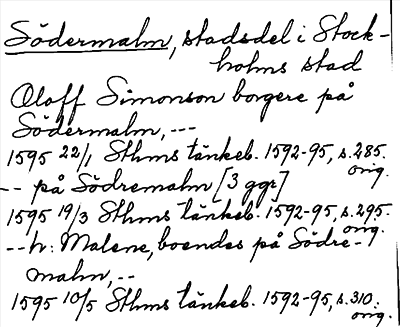 Södermalm, stadsdel i Stock-
holms stad
Oloff Simonson borgere på
Södermalm, ---
1595 22/1 Sthms tänkeb. 1592-95, s. 285.
orig.
-- på Södremalm [3 ggr]
1595 19/3 Sthms tänkeb. 1592-95, s. 295.
orig.
-- h: Malene, boendes på Södre-
malm, --
1595 10/5 Sthms tänkeb. 1592-95, s. 310.
orig.